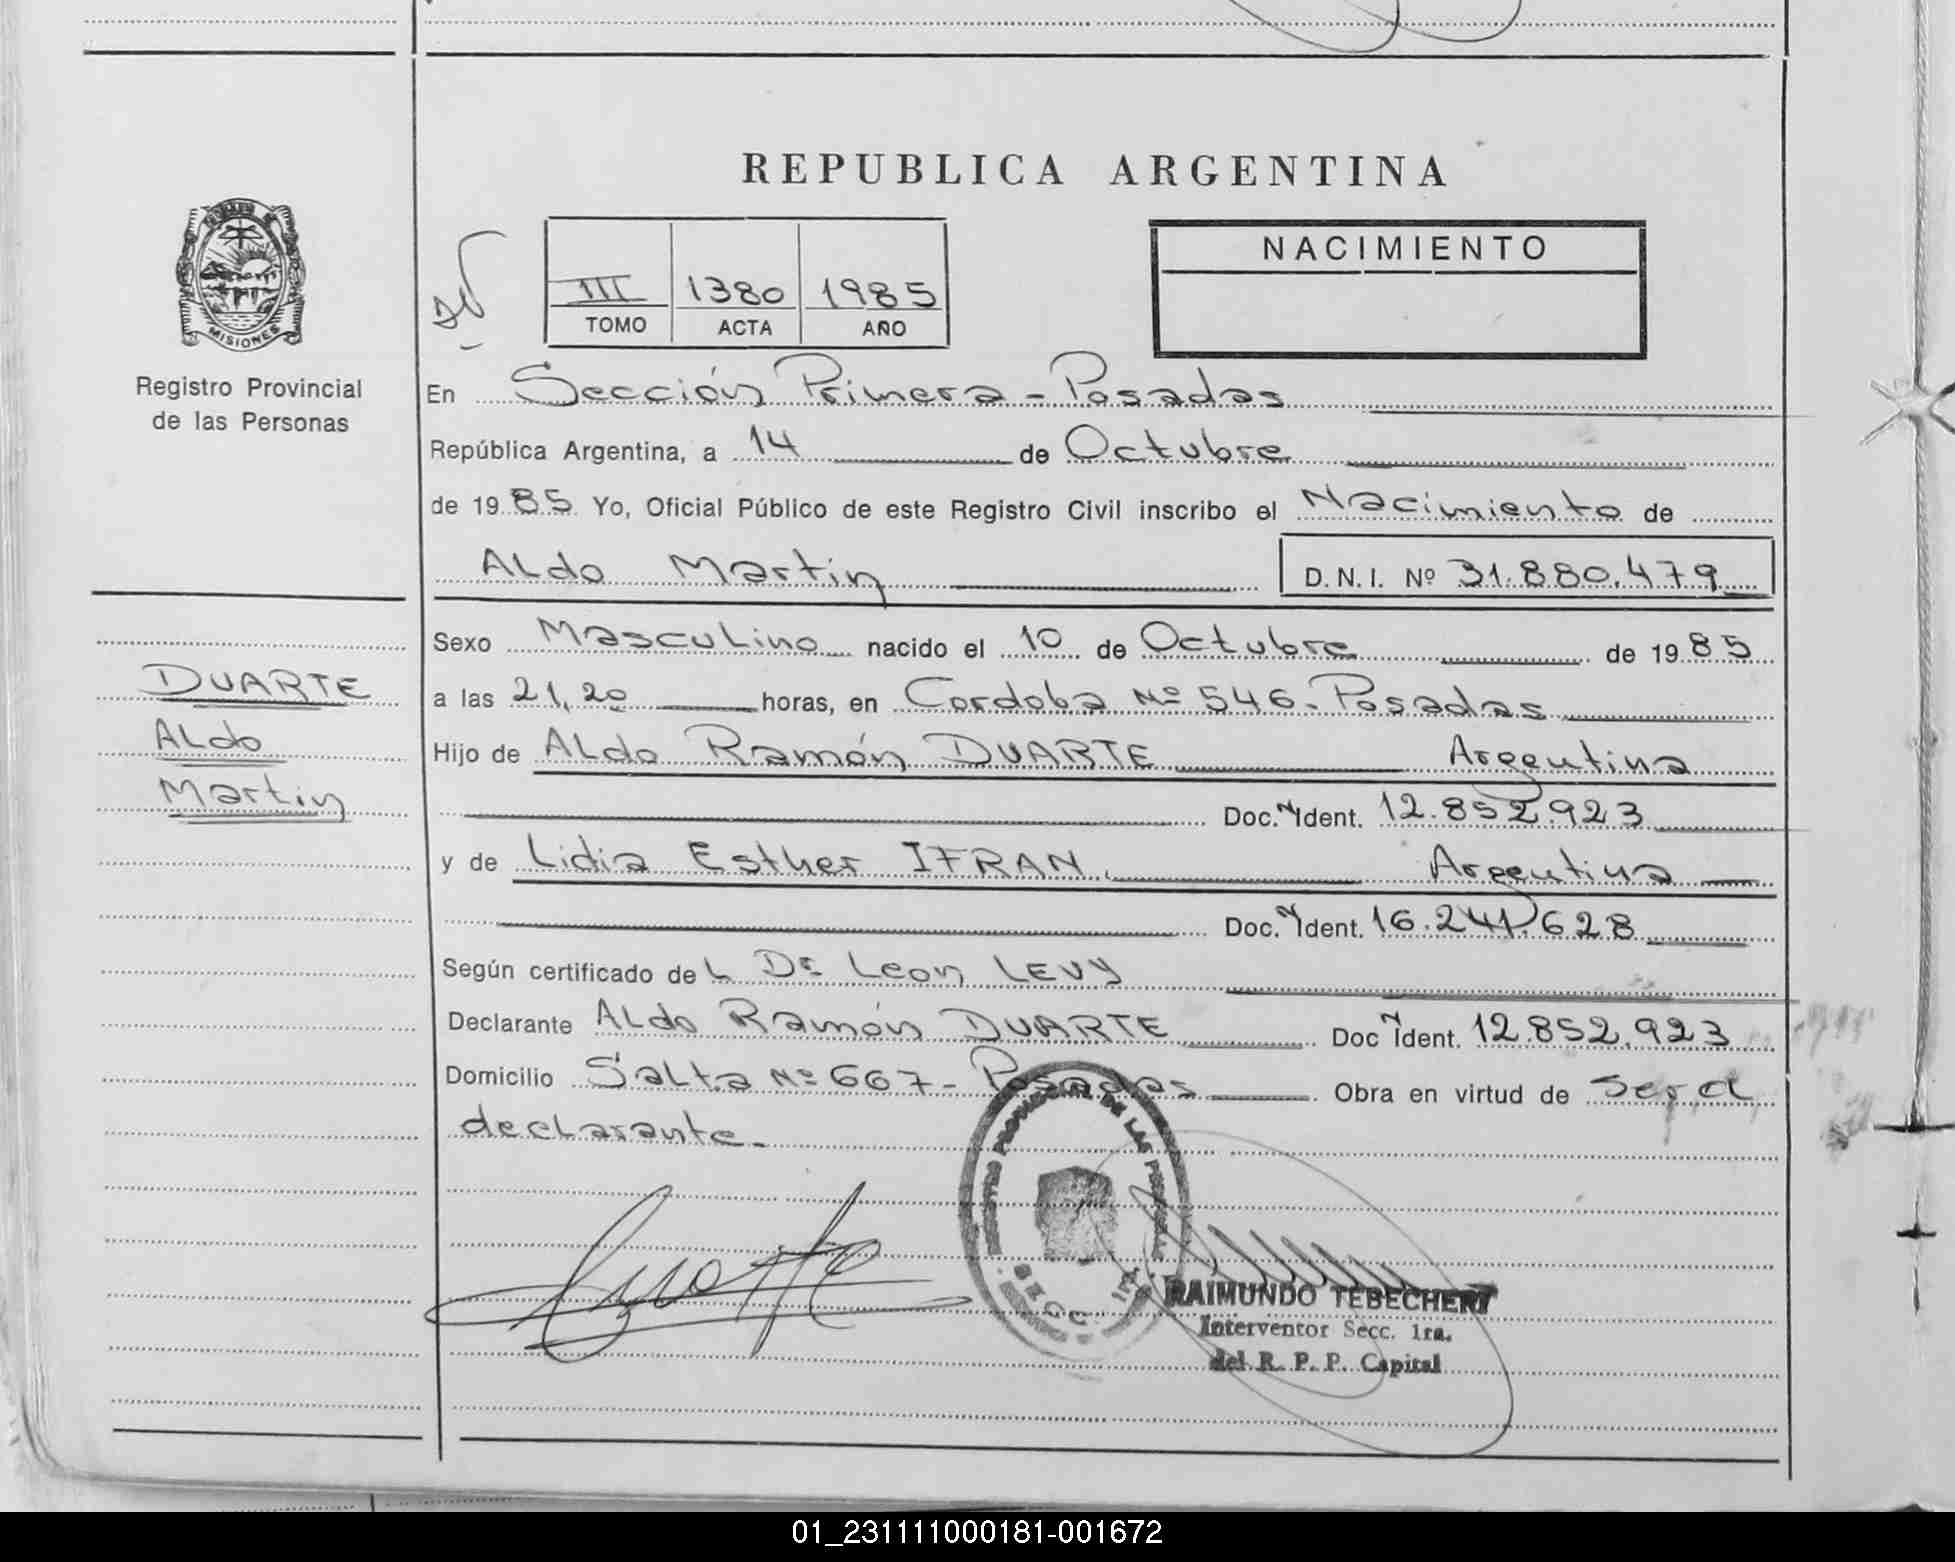 REPUBLICA ARGENTINA
MISIONES
Registro Provincial
de las Personas
III 1380 1985
TOMO ACTA AÑO
NACIMIENTO
En Sección Primera - Posadas
República Argentina, a 14 de Octubre
de 1985 Yo, Oficial Público de este Registro Civil inscribo el Nacimiento de
ALdo Martin D.N.I. Nº 31.880.479
Sexo MascuLino nacido el 10 de Octubre de 1985
a las 21,20 horas, en Cordoba Nº 546 - Posadas
Hijo de ALdo Ramón DUARTE Argentina
Doc. N Ident. 12.852.923
y de Lidia Esther IFRAN, Argentina
Doc. N Ident. 16.241.628
Según certificado de L Dr Leon LEVY
Declarante ALdo Ramón DUARTE Doc N Ident. 12.852.923
Domicilio SaLta Nº 667 - Posadas Obra en virtud de ser el
decLarante.
DUARTE
ALdo
Martin
PROVINCIAL DE LAS
SECC. 1ra
RAIMUNDO TEBECHERY
Interventor Secc. 1ra.
del R. P. P. Capital
01_231111000181-001672